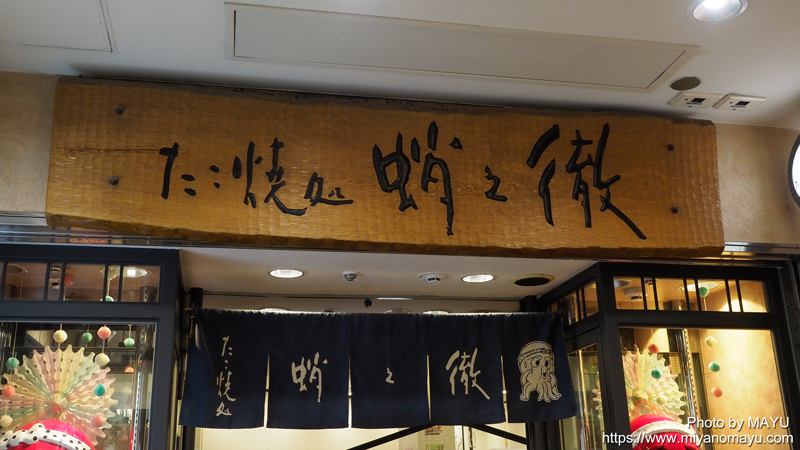 たこ焼処 蛸之徹
たこ焼処 蛸之徹
Photo by MAYU
https://www.miyanomayu.com